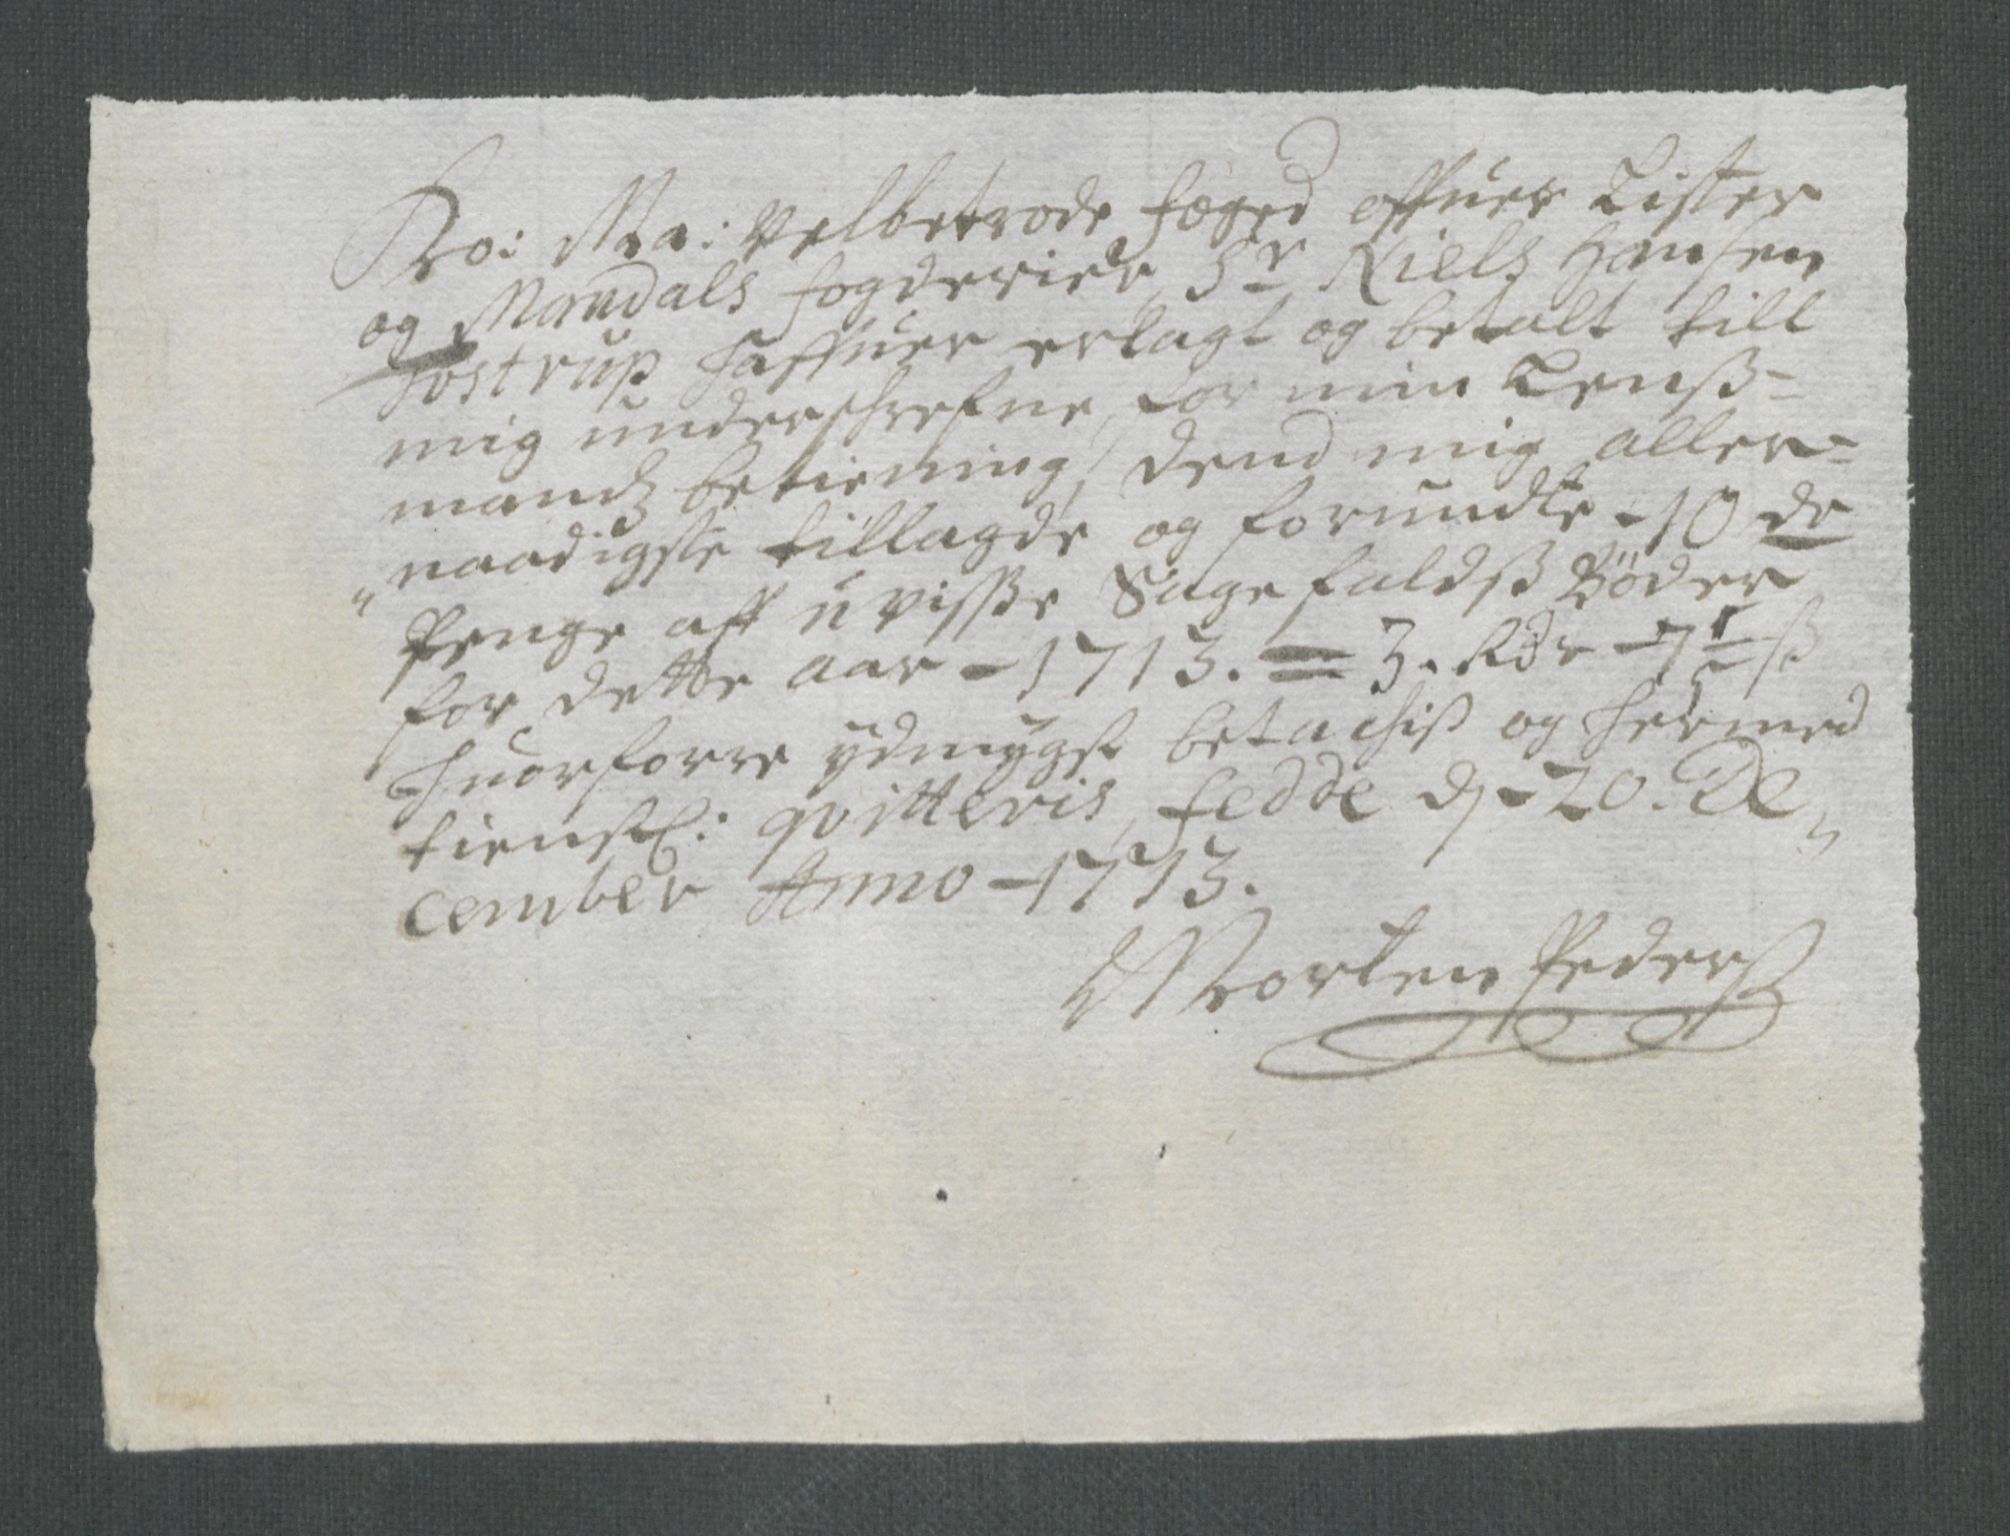 Ko: Ma: Velbetrode foged offuer Lister
og Mandals fogderier, Sr Niels Hansen
Tostrup haffuer erlagt og betalt till
mig underschrefne, for min Lenß=
mandz betiening, dend mig aller=
naadigste tillagde og forundte - 10 de
Penge aff uvisse Sagefaldß Bøder
for dette aar - 1713. = 3. Rdr - 7 1/2 ß
huorforre ydmygst betachiß og hermed
tienstl: qvitteris, Fedde dj - 20. De,,
cember Anno - 1713.
Morten Pederß